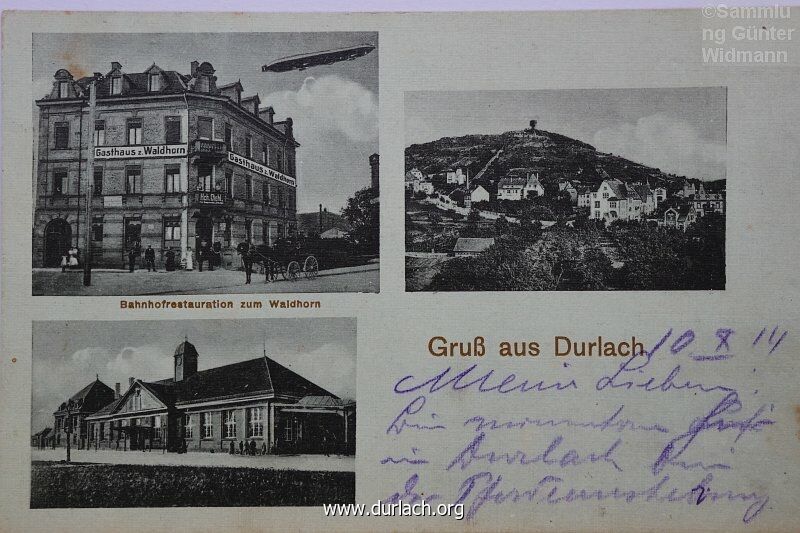 ©Sammlu
ng Günter
Widmann
Gasthaus z. Waldhorn
Gasthaus z. Waldhorn
Bahnhofrestauration zum Waldhorn
Gruß aus Durlach
10 X 14
Meine Lieben!
Bin momentan
in Durlach bei
der Pferdeaushebung
www.durlach.org